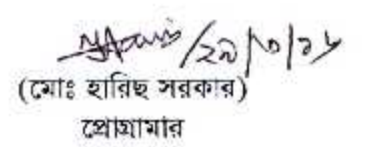 /২৯/৩/১৮
(মোঃ হারিছ সরকার)
প্রোগ্রামার